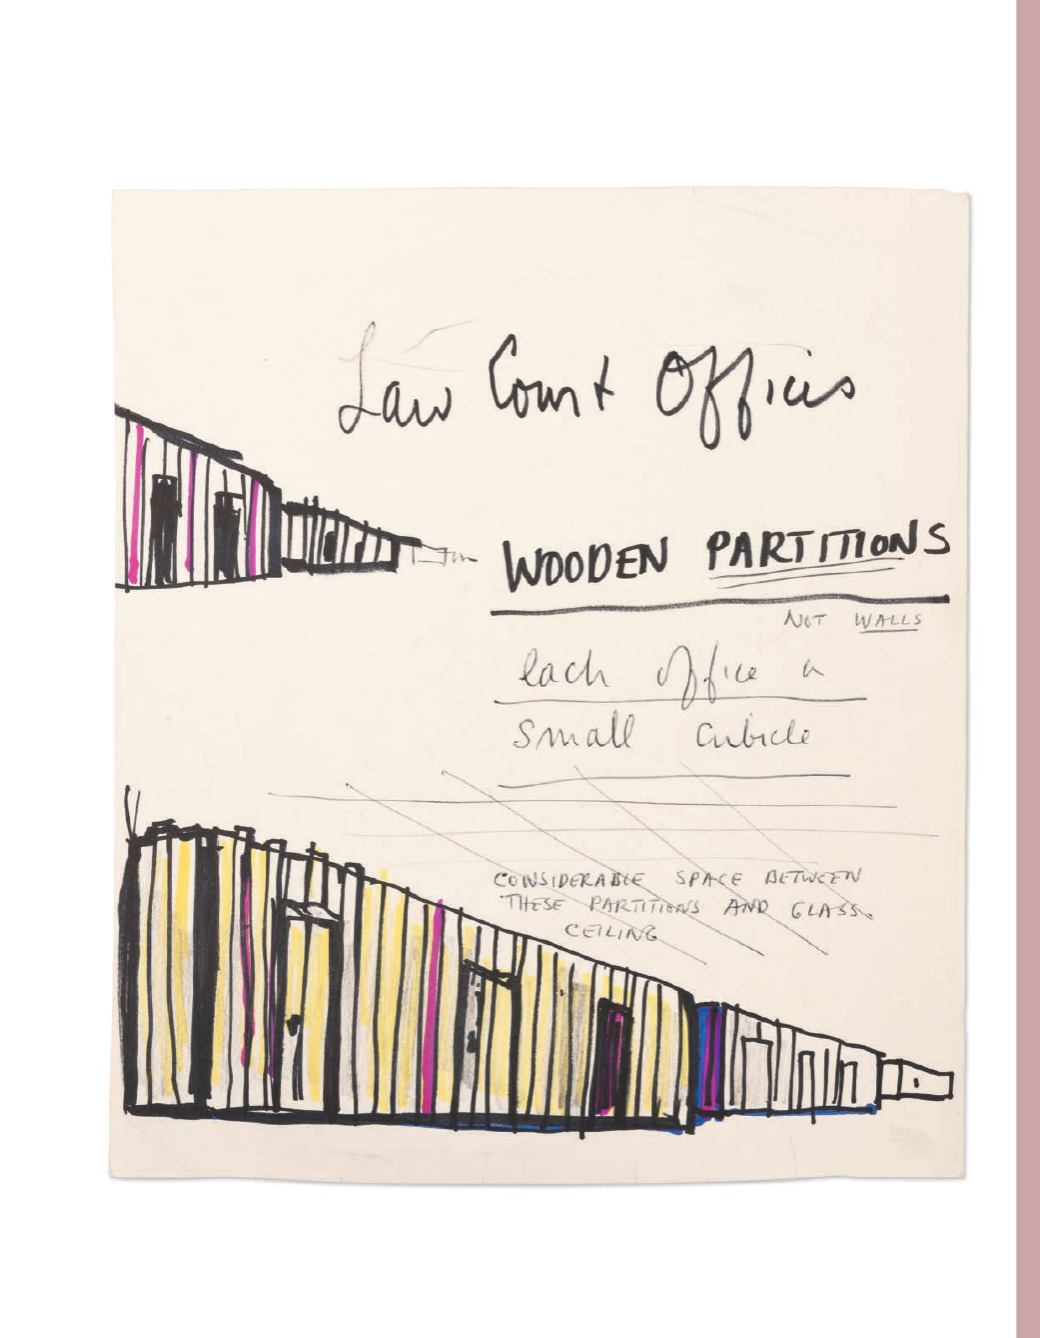 Law Court Offices
WOODEN PARTITIONS
NOT WALLS
each office a
small cubicle
CONSIDERABLE SPACE BETWEEN
THESE PARTITIONS AND GLASS
CEILING